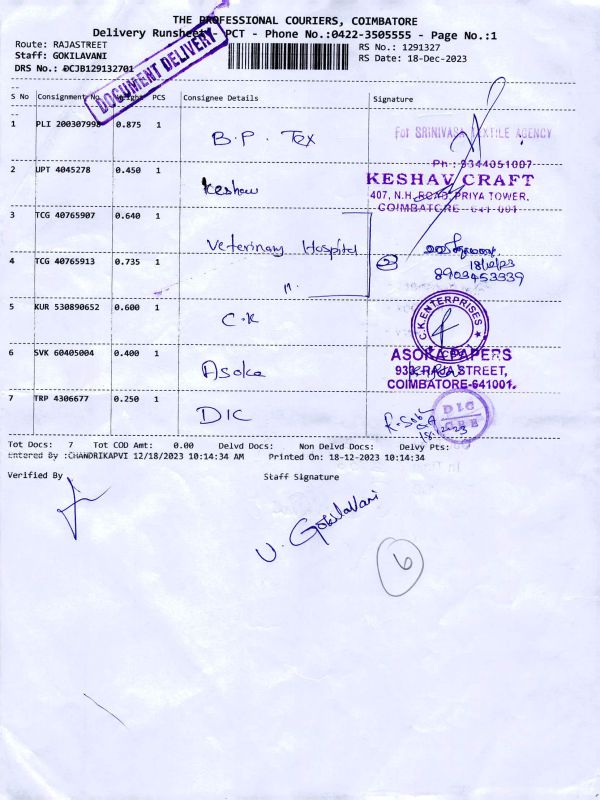 THE PROFESSIONAL COURIERS, COIMBATORE
Delivery Runsheet PCT - Phone No.:0422-3505555 - Page No.:1
Route: RAJASTREET
RS No.: 1291327
Staff: GOKILAVANI
RS Date: 18-Dec-2023
DRS No.: DCJB129132701
DOCUMENT DELIVERY
S No Consignment No Weight PCS Consignee Details Signature
1 PLI 200307998 0.875 1 B.P. Tex
For SRINIVASA TEXTILE AGENCY
Ph : 9344051007
2 UPT 4045278 0.450 1 Keshav
KESHAV CRAFT
407, N.H. ROAD, PRIYA TOWER,
COIMBATORE - 641 001
3 TCG 40765907 0.640 1 Veterinary Hospital
4 TCG 40765913 0.735 1 "
2
18/12/23
8903453339
5 KUR 530890652 0.600 1 C.K
C.K.ENTERPRISES
CBE
6 SVK 60405004 0.400 1 Asoka
ASOKA PAPERS
933, RAJA STREET,
COIMBATORE-641001.
7 TRP 4306677 0.250 1 DIC
DIC
CBE
18.12.23
Tot Docs: 7 Tot COD Amt: 0.00 Delvd Docs: Non Delvd Docs: Delvy Pts:
Entered By :CHANDRIKAPVI 12/18/2023 10:14:34 AM Printed On: 18-12-2023 10:14:34
Verified By Staff Signature
V. Gokilavani
6